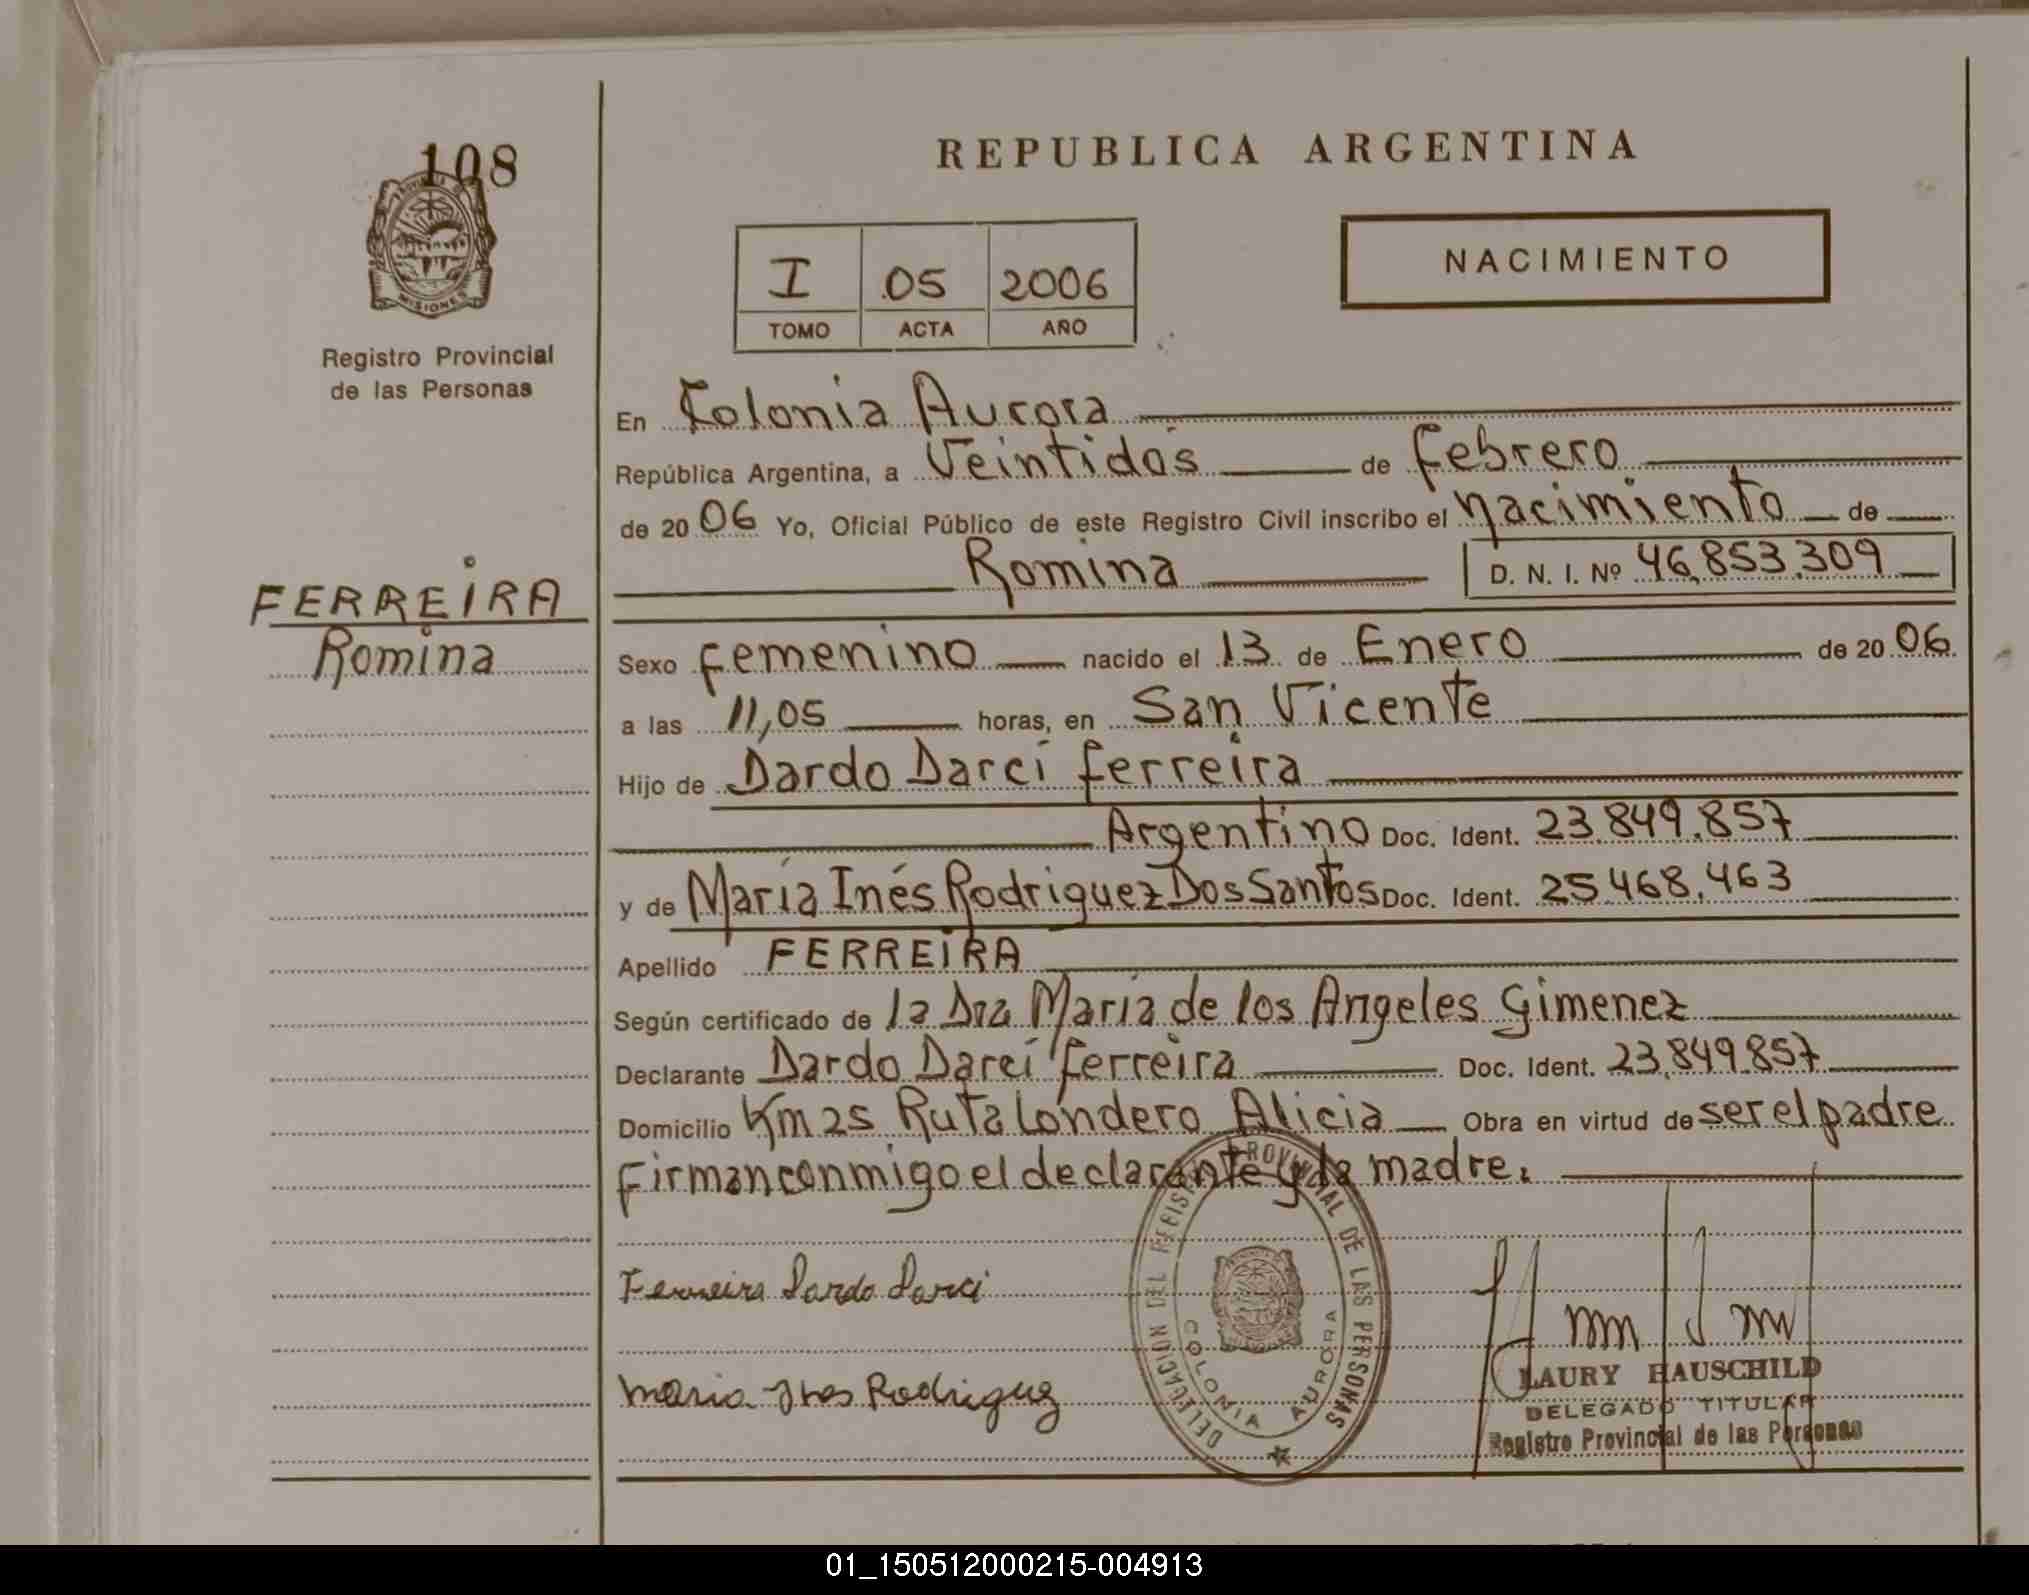 108
PROVINCIA DE
MISIONES
Registro Provincial
de las Personas
FERREIRA
Romina
REPUBLICA ARGENTINA
I 05 2006
TOMO ACTA AÑO
NACIMIENTO
En Colonia Aurora
República Argentina, a Veintidós de Febrero
de 2006 Yo, Oficial Público de este Registro Civil inscribo el nacimiento de
Romina D. N. I. Nº 46.853.309
Sexo femenino nacido el 13 de Enero de 2006
a las 11,05 horas, en San Vicente
Hijo de Dardo Darcí Ferreira
Argentino Doc. Ident. 23.849.857
y de María Inés Rodriguez Dos Santos Doc. Ident. 25.468.463
Apellido FERREIRA
Según certificado de la Dra María de los Angeles Gimenez
Declarante Dardo Darcí Ferreira Doc. Ident. 23.849.857
Domicilio Km 25 Ruta Londero Alicia Obra en virtud de ser el padre
Firman conmigo el declarante y la madre.
Ferreira Dardo Darci
Maria Ines Rodriguez
DELEGACIÓN DEL REGISTRO PROVINCIAL DE LAS PERSONAS
COLONIA AURORA
LAURY HAUSCHILD
DELEGADO TITULAR
Registro Provincial de las Personas
01_150512000215-004913